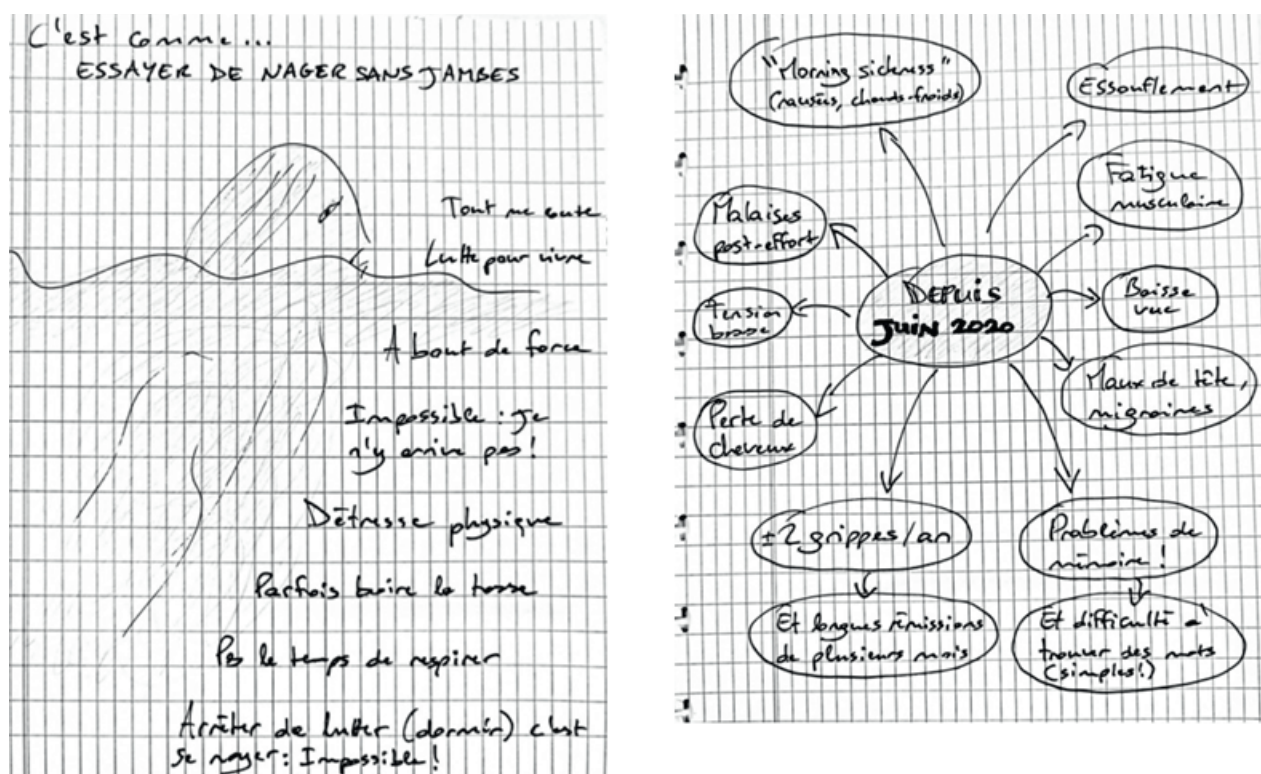 C'est comme...
ESSAYER DE NAGER SANS JAMBES
Tout me coute
Lutte pour vivre
A bout de force
Impossible : je
n'y arrive pas !
Détresse physique
Parfois boire la tasse
Pas le temps de respirer
Arrêter de lutter (dormir) c'est
se noyer : Impossible !
"Morning sickness"
(nausées, chauds-froids)
Essouflement
Fatigue
musculaire
Malaises
post-effort
DEPUIS
JUIN 2020
Baisse
vue
Tension
basse
Maux de tête,
migraines
Perte de
cheveux
±2 grippes/an
Problèmes de
mémoire !
Et longues rémissions
de plusieurs mois
Et difficulté à
trouver des mots
(simples!)